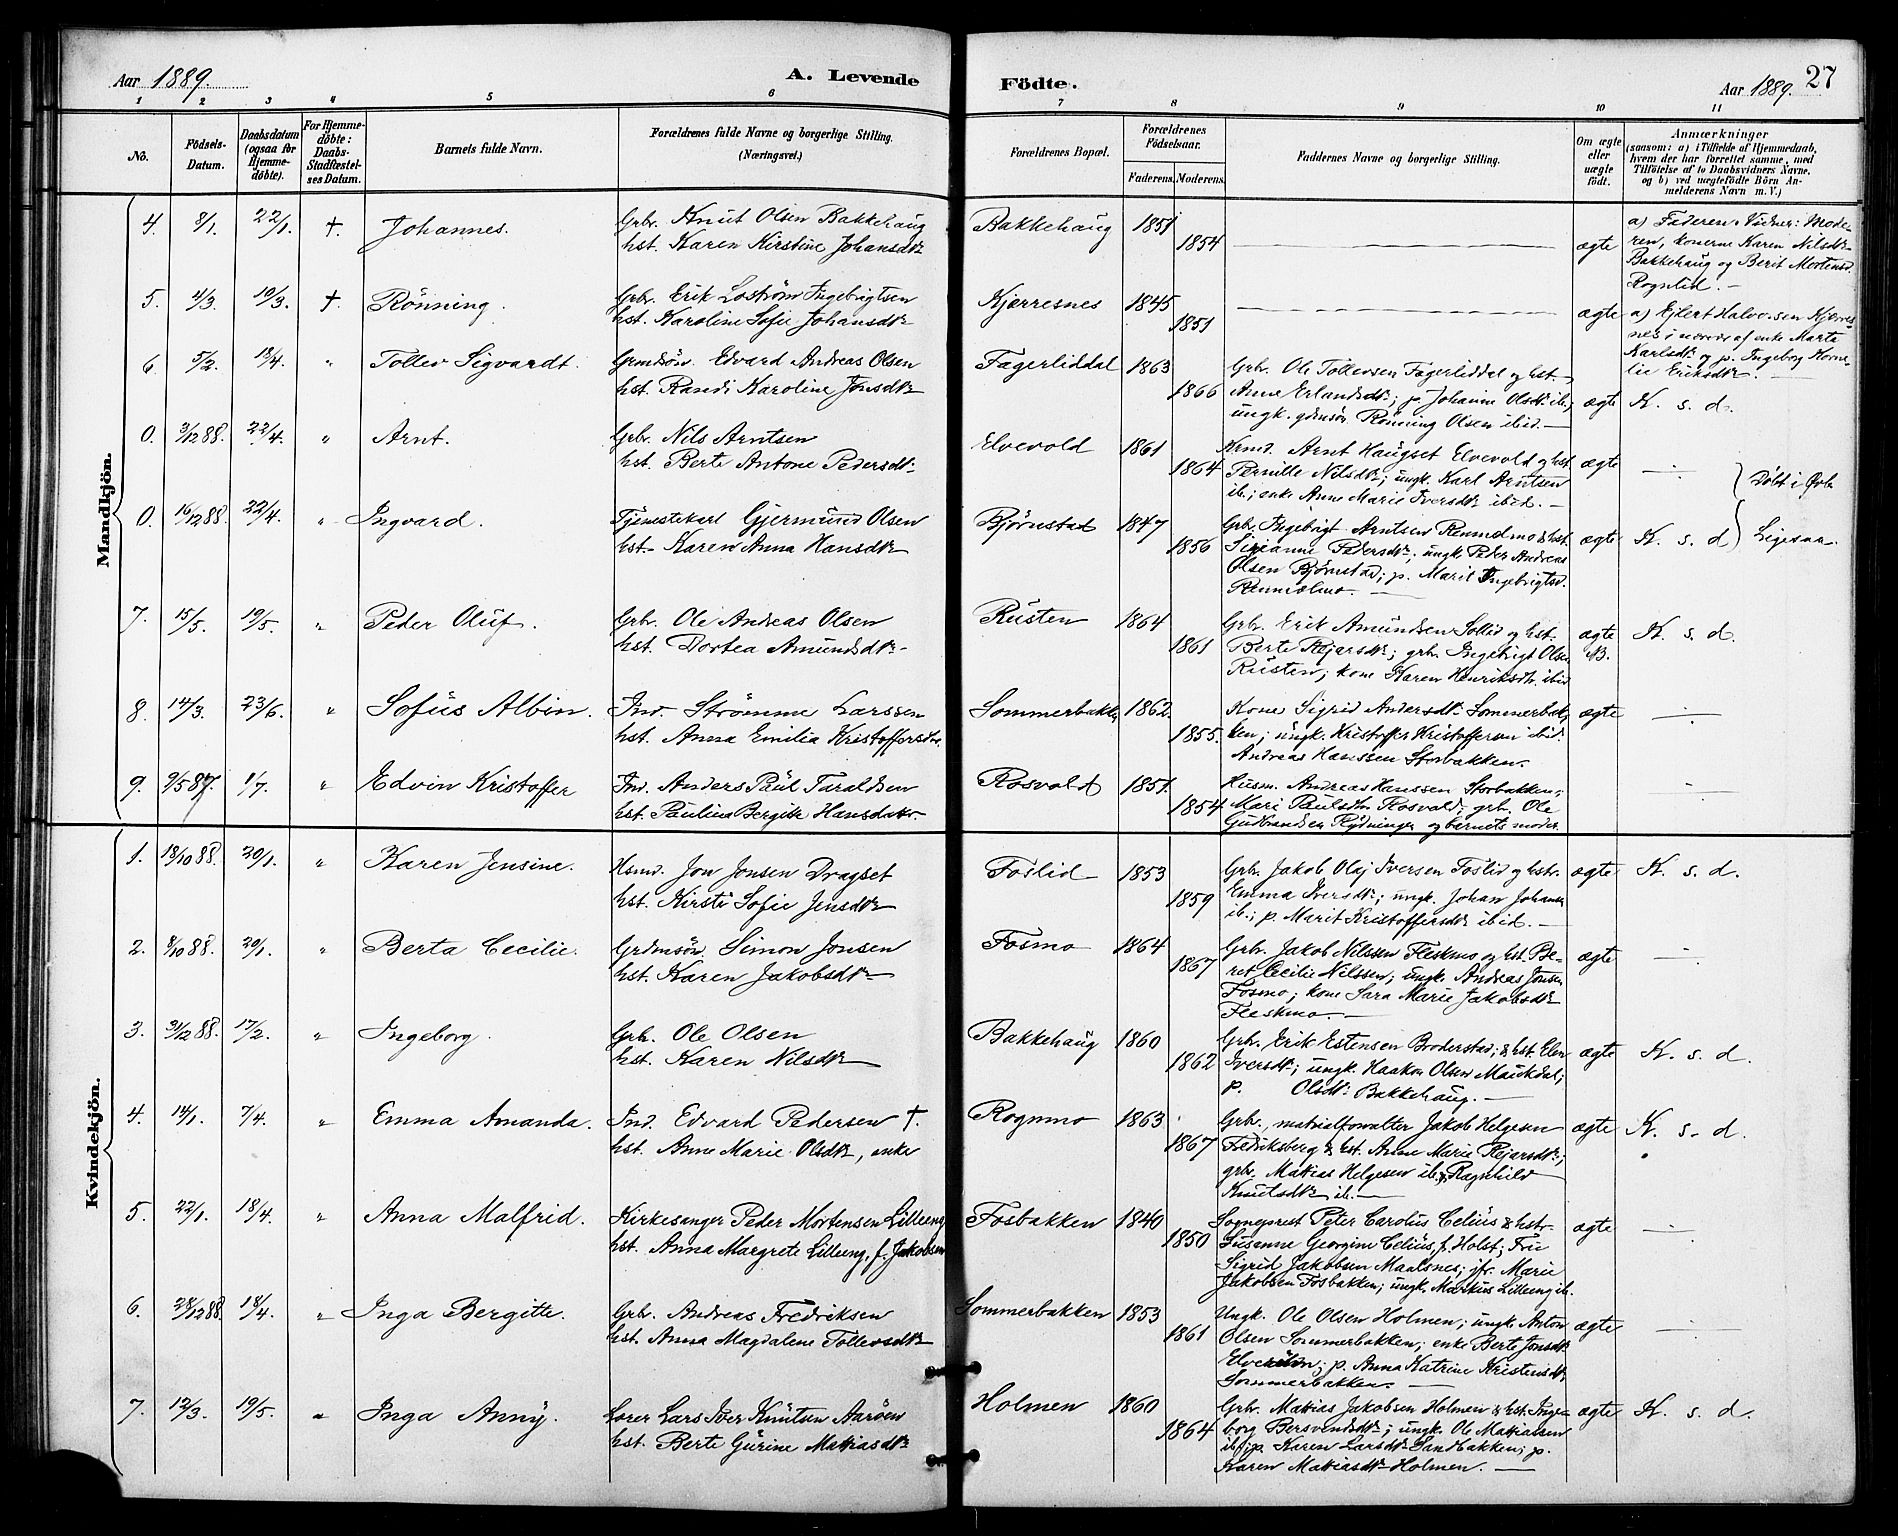 Aar 1889.
A. Levende
Födte.
Aar 1889. 27
1 2 3 4 5 6 7 8 9 10 11
No.
Födsels-Datum.
Daabsdatum (ogsaa for Hjemme-döbte).
For Hjemme-döbte: Daabs-Stadfæstel-ses Datum.
Barnets fulde Navn.
Forældrenes fulde Navne og borgerlige Stilling.
(Næringsvei.)
Forældrenes Bopæl.
Forældrenes Födselsaar.
Faderens. Moderens.
Faddernes Navne og borgerlige Stilling.
Om ægte eller uægte födt.
Anmærkninger
(saasom: a) i Tilfælde af Hjemmedaab,
hvem der har forrettet samme, med
Tilföielse af to Daabsvidners Navne,
og b) ved uægtefödte Börn An-
melderens Navn m. V.)
Mandkjön.
4. 8/1. 22/1. †. Johannes. Grbr. Knut Olsen Bakkehaug
hst. Karen Kirstine Johansdtr
Bakkehaug 1851 1854 ægte
a) Faderen. Vidner: Mode-
ren, konerne Karen Nilsdtr
Bakkehaug og Berit Mortensd.
Rognlid.
5. 4/3. 10/3. †. Rönning. Grbr. Erik Loström Ingebrigtsen
hst. Karoline Sofie Johansdtr
Kjærresnes 1845 1851 ægte
a) Ejlert Halvorsen Kjærres-
nes i nærvær af enke Marta
Karlsdtr og p. Ingeborg Korne-
lie Eriksdtr.
6. 5/2. 18/4. " Tollev Sigvardt. Grmdsön. Edvard Andreas Olsen
hst. Randi Karoline Jonsdtr
Fagerliddal 1863 1866
Grbr. Ole Tollevsen Fagerliddal og hst.
Anne Erlandsdtr; p. Johanne Olsdtr ib.;
ungk. gdmsön Rönning Olsen ibid.
ægte K. s. d.
0. 3/12 88. 22/4. " Arnt. Grbr. Nils Arntsen
hst. Berte Antone Pedersdtr
Elvevold 1861 1864
Krmd. Arnt Haugset Elvevold og hst.
Pernille Nilsdtr; ungk. Karl Arntsen
ib.; enke Anne Marie Iversdtr ibid.
ægte Döbt i Øvb
0. 16/12 88. 22/4. " Ingvard. Tjenestekarl Gjermund Olsen
hst. Karen Anna Hansdtr
Bjørnstad 1847 1856
Grbr. Ingebrigt Arntsen Rennelmo & hst.
Sirianne Pedersdtr; ungk. Peder Andreas
Olsen Bjørnstad; p. Marit Ingebrigtsd.
Rennælmo.
ægte K. s. d. Ligesaa.
7. 15/5. 19/5. " Peder Oluf. Grbr. Ole Andreas Olsen
hst. Dortea Amundsdtr
Rusten 1864 1861
Grbr. Erik Amundsen Sollid og hst.
Berte Rejarsdtr; grbr. Ingebrigt Olsen
Rusten; kone Karen Henriksdtr ibid
ægte K. s. d.
8. 14/3. 23/6. " Sofus Albin. Ind. Strömme Larssen
hst. Anna Emilia Kristoffersdtr.
Sommerbakk 1862. 1855.
Kone Sigrid Andersdtr Sommerbak-
ken; ungk. Kristoffer Kristoffersen ibid.
Andreas Hanssen Storbakken.
ægte
9. 9/5 87. 1/7. " Edvin Kristoffer Ind. Anders Paul Taraldsen
hst. Paulina Bergitte Hansdatr.
Rosvold 1851. 1854
Husm. Andreas Hanssen Storbakken;
Mari Paulsdtr Rosvold; grbr. Ole
Gudbrandsen Rydninger og barnets moder.
Kvindekjön.
1. 18/10 88. 20/1. " Karen Jensine. Hsmd. Jon Jonsen Dragset
hst. Kirsti Sofie Jensdtr
Foslid 1853 1859
Grbr. Jakob Olaj Iversen Foslid og hstr.
Emma Iversdtr; ungk. Johan Johans
ib.; p. Marit Kristoffersdtr ibid.
ægte K. s. d.
2. 8/10 88. 20/1. " Berta Cecilie. Grdmsön. Simon Jonsen
hst. Karen Jakobsdtr
Fosmo 1864 1867
Grbr. Jakob Nilssen Fleskmo og hst. Be-
ret Cecilie Nilssen; ungk. Andreas Jonsen
Fosmo; kone Sara Marie Jakobsdtr
Fleskmo.
ægte
3. 31/12 88. 17/2. " Ingeborg. Grbr. Ole Olsen
hst. Karen Nilsdtr
Bakkehaug 1860 1862
Grbr. Erik Estensen Broderstad; & hst. Elen
Iversdtr; ungk. Haakon Olsen Maukdal;
p. Olsdtr. Bakkehaug.
ægte K. s. d.
4. 14/1. 7/4. " Emma Amanda. Ind. Edvard Pedersen †.
hst. Anne Marie Olsdtr, enke
Rognmo 1863 1867
Grbr., matrialforvalter Jakob Helgesen
Fredriksberg & hst. Anne Marie Rejarsdtr;
grbr. Matias Helgesen ib. & Ragnhild
Knutsdtr ib.
ægte K. s. d.
5. 22/1. 18/4. " Anna Malfrid. Kirkesanger Peder Mortensen Lilleeng
hst. Anna Margrete Lilleeng, f. Jakobsen
Fosbakken 1840 1850
Sogneprest Peter Carolus Celius & hstr
Susanne Georgine Celius, f. Holst; Fru
Sigrid Jakobsen Maalsnes; jfr. Marie
Jakobsen Fosbakken; ungk. Markus Lilleeng ib.
ægte
6. 28/12 88. 18/4. " Inga Bergitte. Grbr. Andreas Fredriksen
hst. Anna Magdalene Tollevsdtr
Sommerbakken 1853 1861
Ungk. Ole Olsen Holmen; ungk. Anton
Olsen Sommerbakken; enke Berte Jonsdtr
p. Anna Katrine Kristensdtr
Sommerbakken.
ægte
7. 12/3. 19/5. " Inga Anny. Lærer Lars Iver Knutsen Aaröen
hst. Berte Gurine Matiasdtr
Holmen 1860 1864
Grbr. Matias Jakobsen Holmen & hst. Inge-
borg Bersvendsdtr; ungk. Ole Matiassen
ib.; p. Karen Larsdtr Sandbakken; p.
Karen Matiasdtr Holmen.
ægte K. s. d.